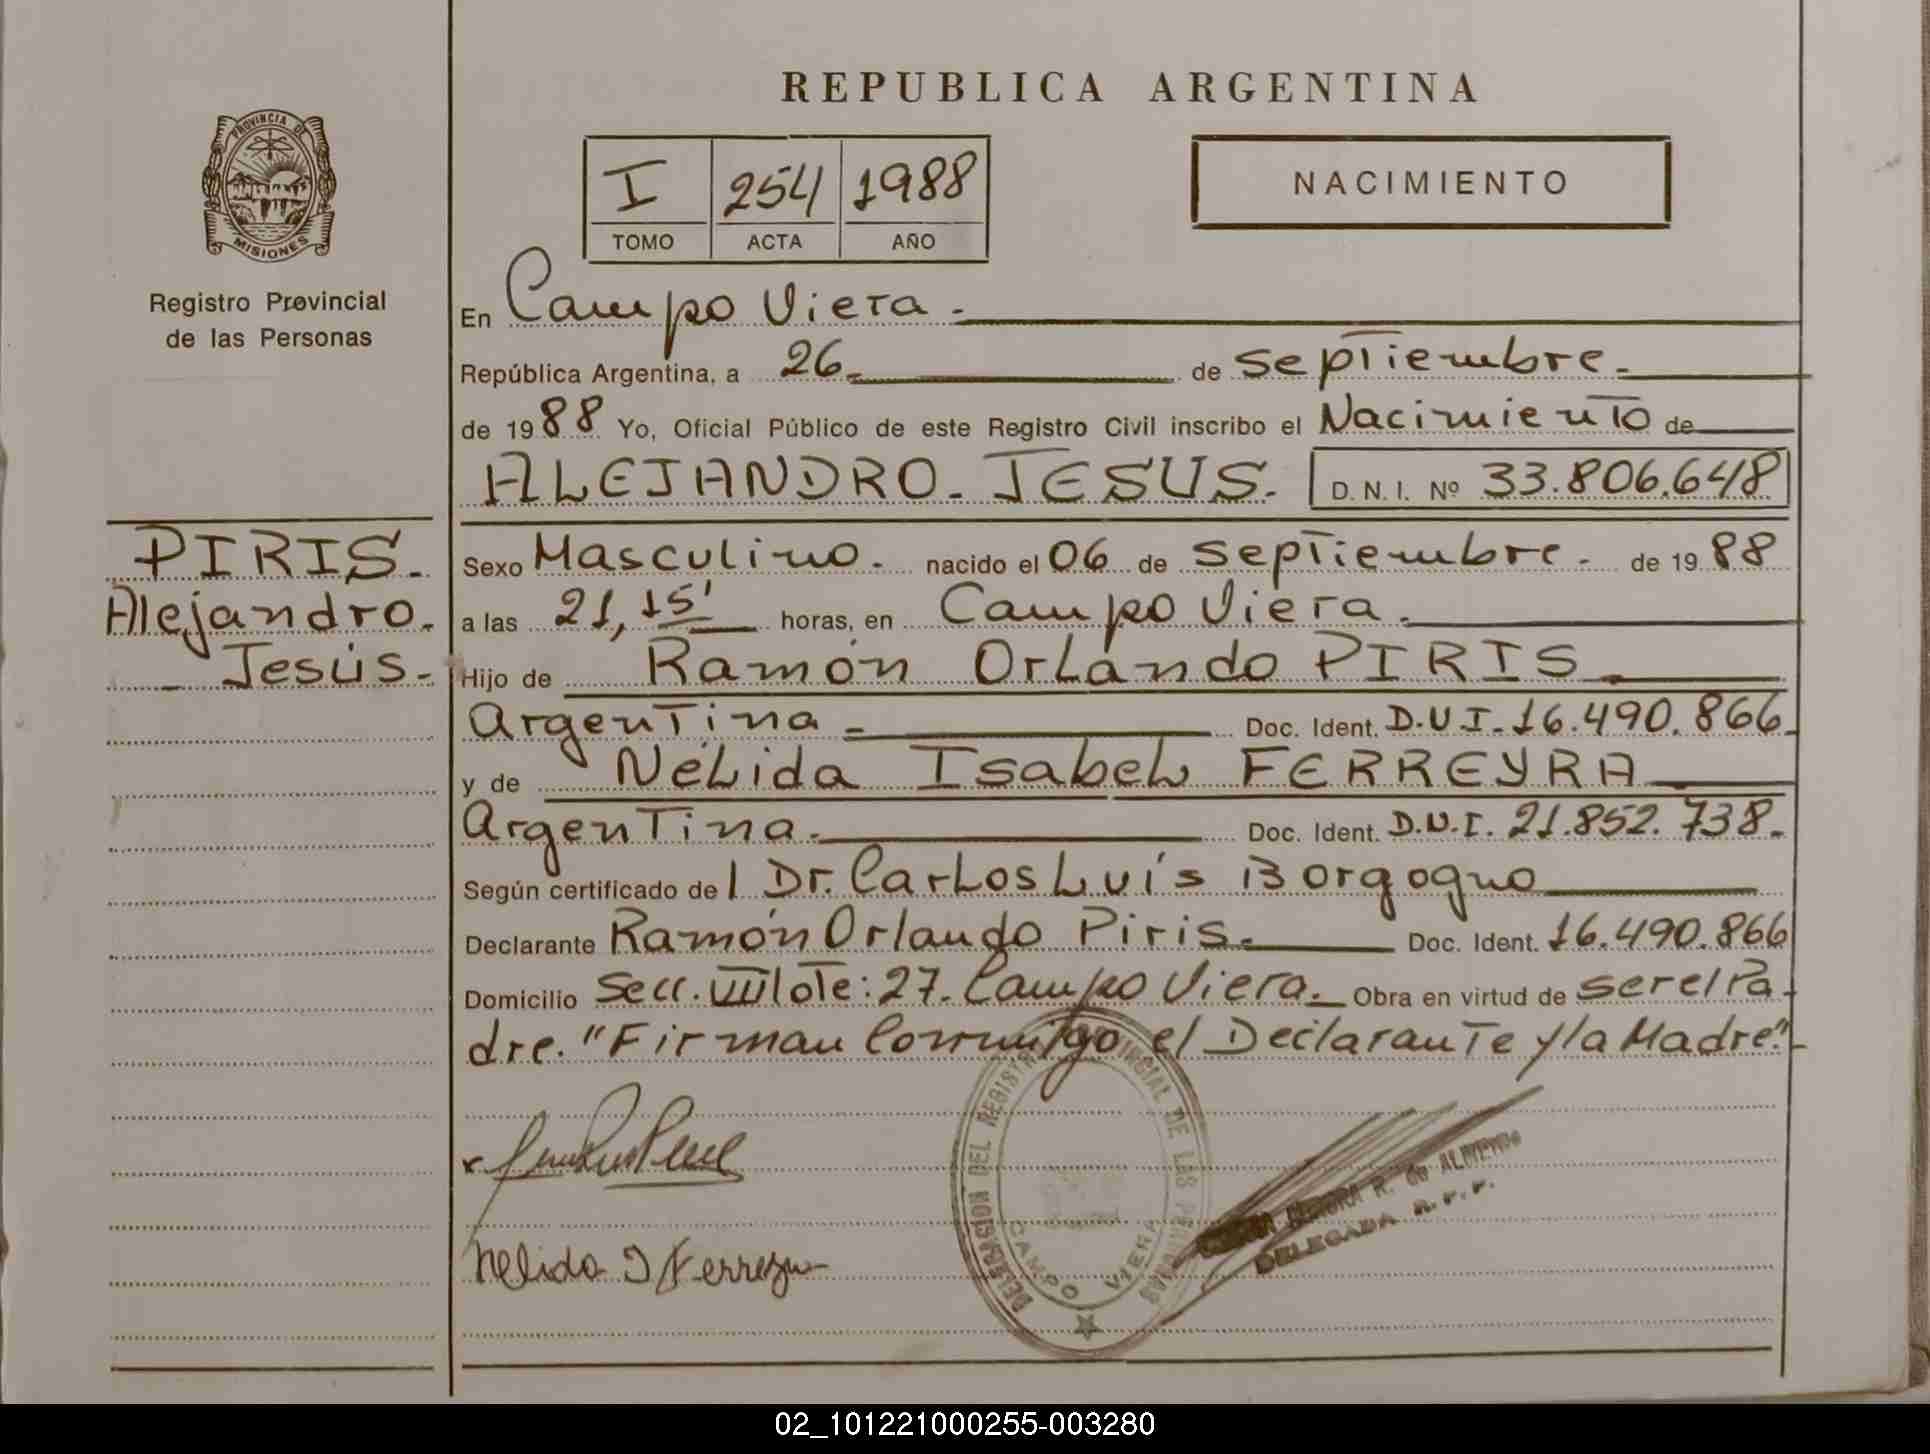 REPUBLICA ARGENTINA
PROVINCIA DE
MISIONES
Registro Provincial
de las Personas
I 254 1988
TOMO ACTA AÑO
NACIMIENTO
En Campo Viera.
República Argentina, a 26 de septiembre.
de 1988 Yo, Oficial Público de este Registro Civil inscribo el Nacimiento de
ALEJANDRO. JESUS. D. N. I. Nº 33.806.648
PIRIS.
Alejandro.
Jesús.
Sexo Masculino. nacido el 06 de septiembre. de 1988
a las 21,15' horas, en Campo Viera.
Hijo de Ramón Orlando PIRIS
Argentina Doc. Ident. D.N.I. 16.490.866.
y de Nélida Isabel FERREYRA
Argentina. Doc. Ident. D.N.I. 21.852.738.
Según certificado de l Dr. Carlos Luís Borgogno
Declarante Ramón Orlando Piris. Doc. Ident. 16.490.866
Domicilio Secc. VIII lote: 27. Campo Viera. Obra en virtud de ser el Pa-
dre. "Firman Conmigo el Declarante y la Madre".
DELEGACION DEL REGISTRO PROVINCIAL DE LAS PERSONAS
CAMPO VIERA
R. de ALMEIDA
DELEGADA R.P.P.
Nelida I Ferreyra
02_101221000255-003280